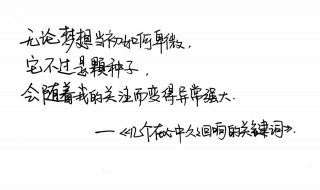 无论梦想当初如何卑微，
它不过是颗种子，
会随着我的关注而变得异常强大.
——《几个在心中久久回响的关键词》.